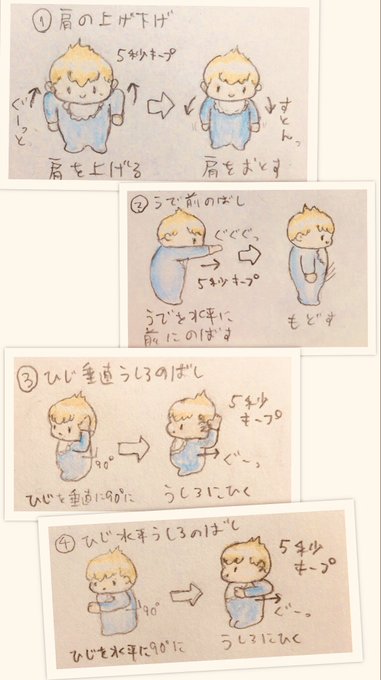 ① 肩の上げ下げ
5秒キープ
ぐーっと
すとんっ
肩を上げる
肩をおとす
② うで前のばし
ぐぐぐっ
5秒キープ
うでを水平に
前にのばす
もどす
③ ひじ垂直うしろのばし
5秒
キープ
90°
ぐーっ
ひじを垂直に90°に
うしろにひく
④ ひじ水平うしろのばし
5秒
キープ
90°
ぐーっ
ひじを水平に90°に
うしろにひく